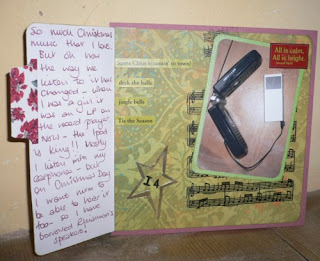 So much Christmas
music that I love.
But oh how
the way we
listen to it has
changed - when
I was a girl it
was an LP on
the record player.
Now - the Ipod
is King!! Mostly
I listen with my
earphones - but
on Christmas Day
I want mum to
be able to hear it
too - so I have
borrowed Rhiannon's
speakers!
Santa Claus is comin' to town!
deck the halls
jingle bells
Tis the Season
All is calm,
All is bright.
14